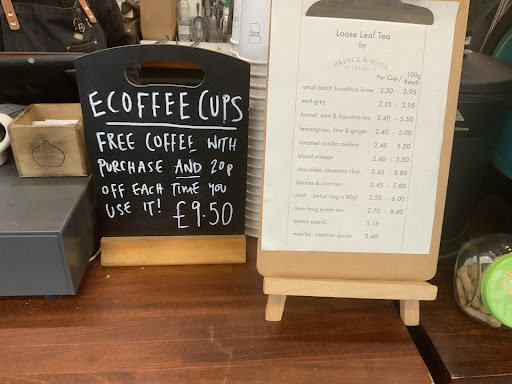 ECOFFEE CUPS
FREE COFFEE WITH
PURCHASE AND 20p
OFF EACH TIME YOU
USE IT! £9.50
Loose Leaf Tea
by
PRINCE & SONS
TEA CO
Per Cup / 100g Retail
small batch breakfast brew 2.30 - 3.95
earl grey 2.35 - 3.95
fennel, mint & liquorice tea 2.40 - 5.50
lemongrass, lime & ginger 2.40 - 5.00
caramel vanilla rooibos 2.40 - 5.50
blood orange 2.40 - 5.50
chocolate cinnamon chai 2.45 - 5.80
berries & cherries 2.45 - 5.80
mint (retail bag is 80g) 2.55 - 6.00
mao feng green tea 2.70 - 8.40
jasmin pearls 3.15
matcha - superior grade 3.40